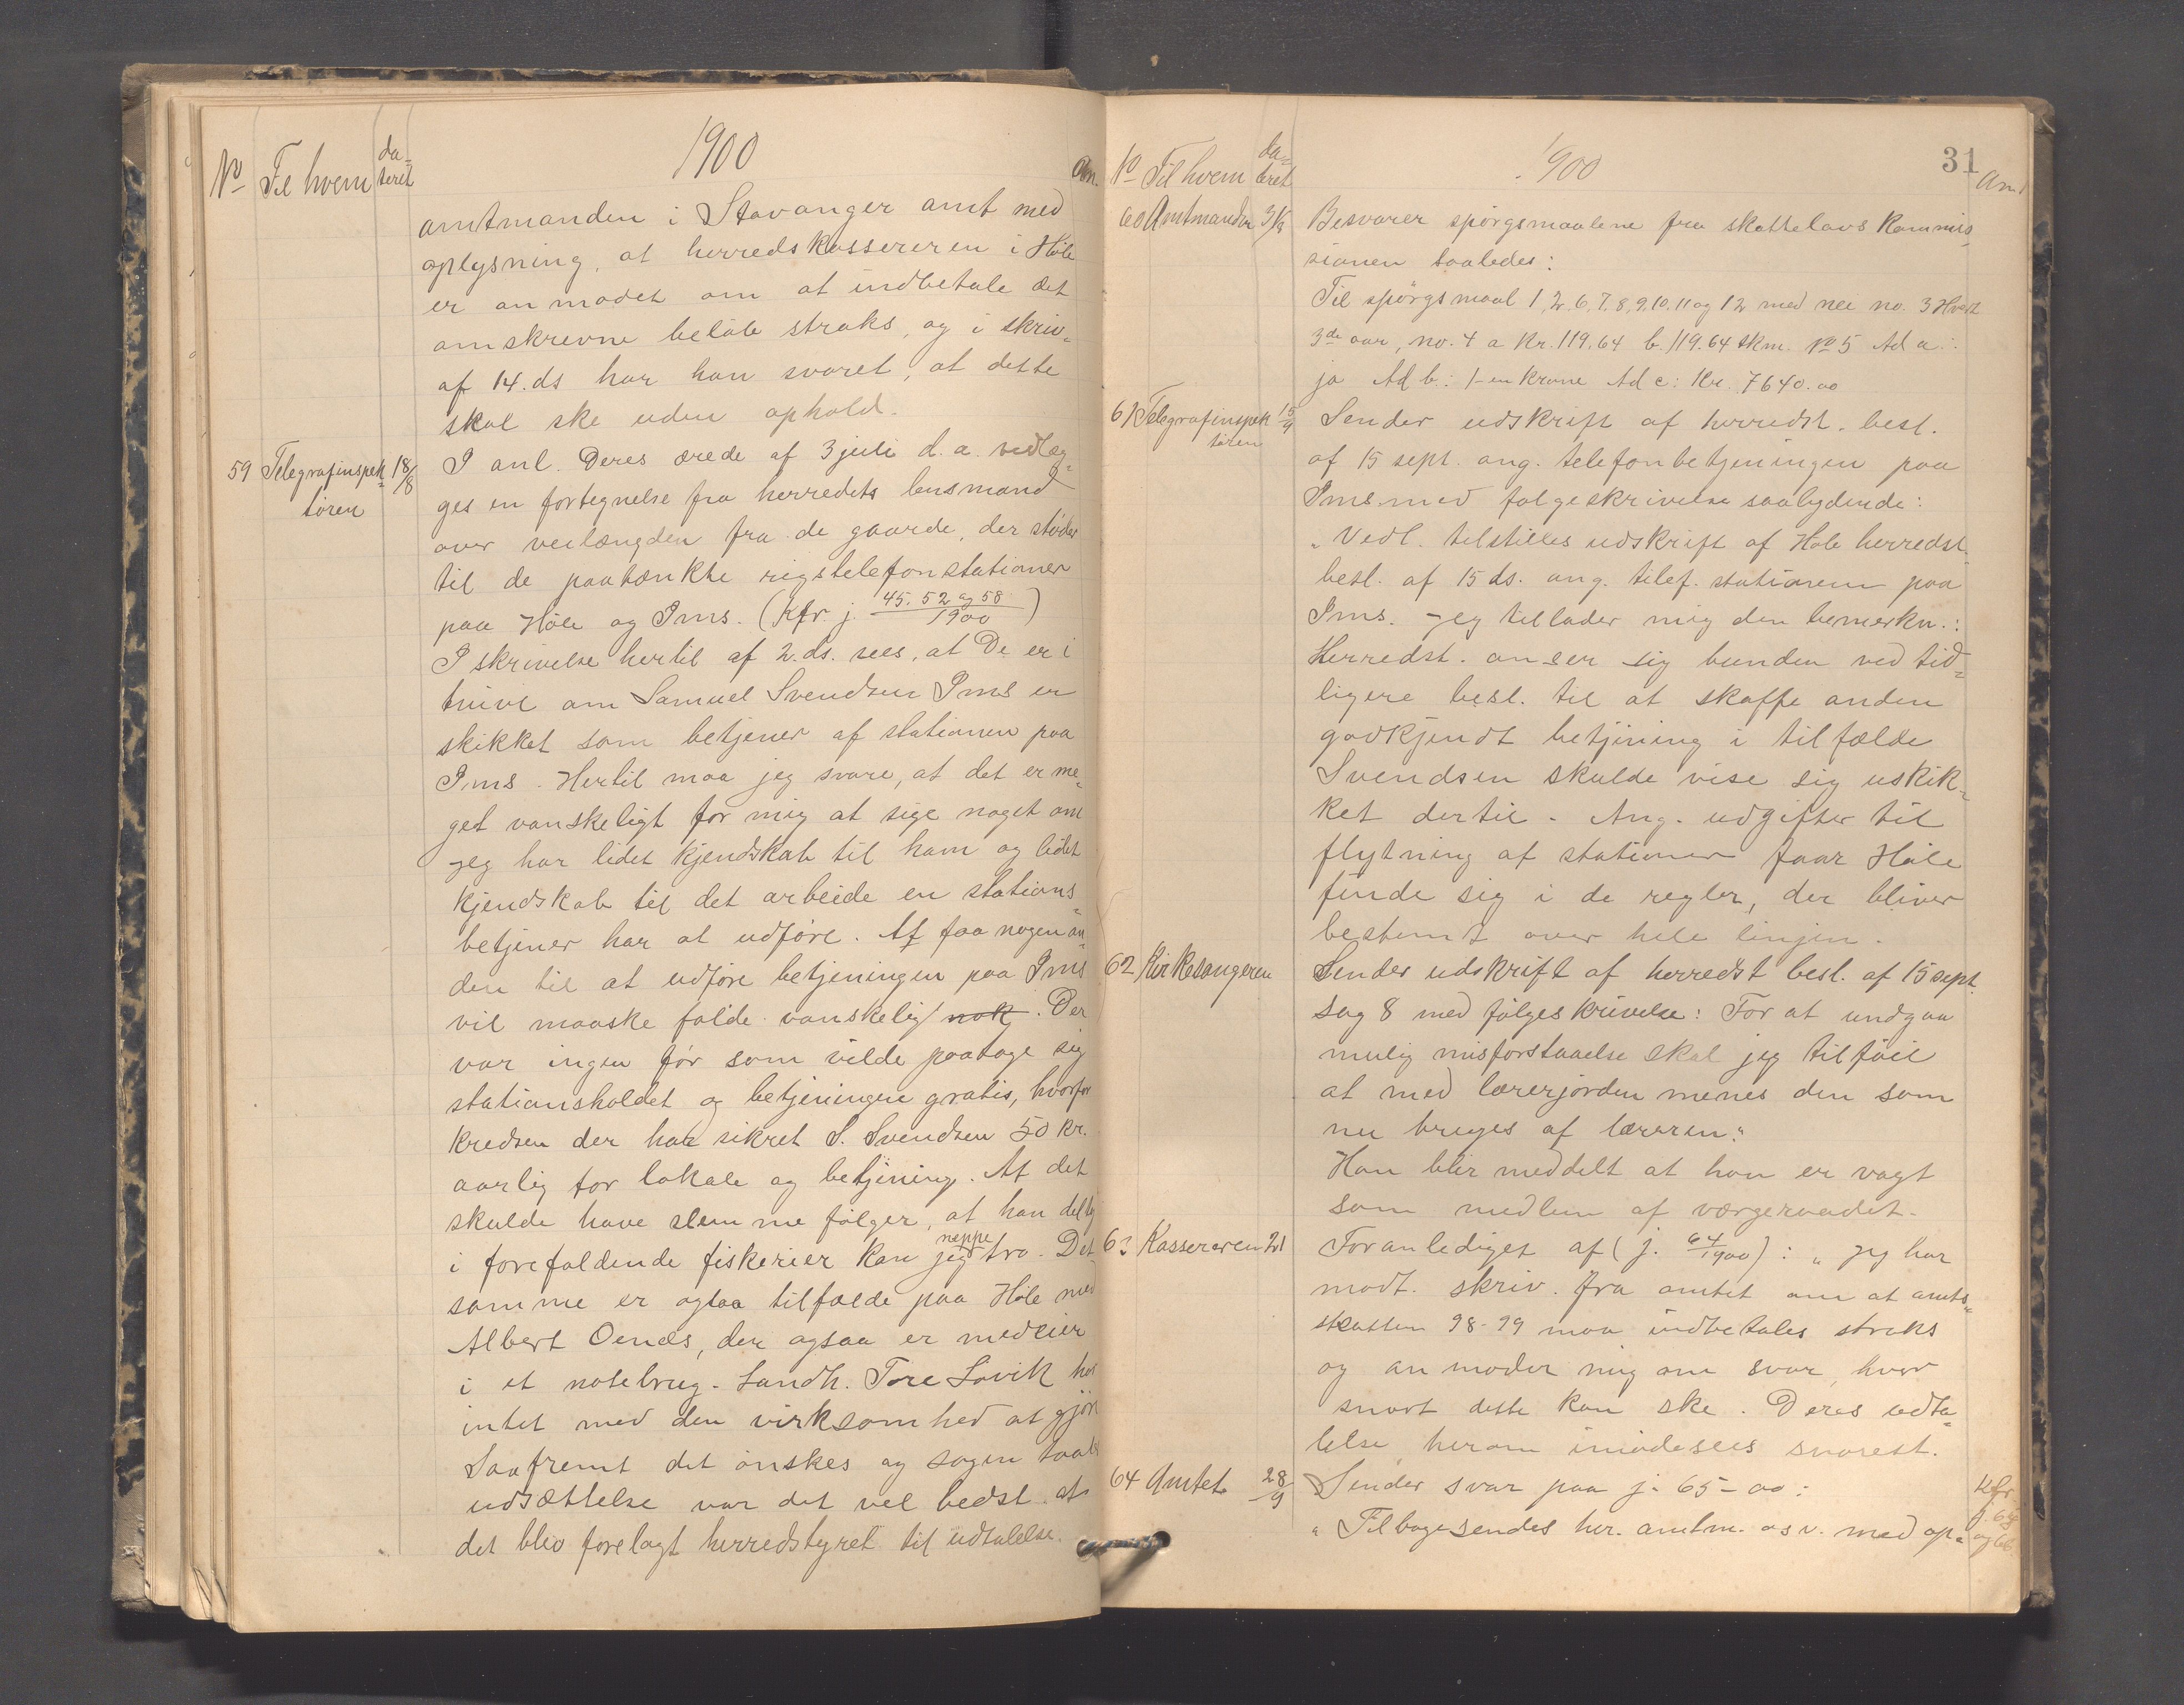 1900
No Til hvem da-
teret An.
amtmanden i Stavanger amt med
oplysning, at herredskassereren i Høle
er anmodet om at indbetale det
omskrevne beløb straks, og i skriv.
af 14. ds har han svaret, at dette
skal ske uden ophold.
59 Telegrafinspek- 18/8 I anl. Deres ærede af 3 juli d. a. vedlæg-
tøren ges en fortegnelse fra herredets lensmand
over veilængden fra de gaarde, der støder
til de paatænkte rigstelefonstationer
paa Høle og Ims. (Kfr j. 45. 52 og 58/1900)
I skrivelse hertil af 2. ds. sees, at De er i
tvivl om Samuel Svendsen Ims er
skikket som betjener af stationen paa
Ims. Hertil maa jeg svare, at det er me-
get vanskeligt for mig at sige noget om
jeg har lidet kjendskab til ham og lidet
kjendskab til det arbeide en stations-
betjener har at udføre. At faa nogen an-
den til at udføre betjeningen paa Ims
vil maaske falde vanskelig nok. Der
var ingen før som vilde paatage sig
stationsholdet og betjeningen gratis, hvorfor
kredsen der har sikret S. Svendsen 50 kr.
aarlig for lokale og betjening. At det
skulde have slemme følger, at han deltg
i forefaldende fiskerier kan jeg neppe tro. Det
samme er ogsaa tilfælde paa Høle med
Albert Oends, der ogsaa er medeier
i et notebrug. Landh. Tore Lovik har
intet med den virksomhed at gjøre
Saafremt det ønskes og sagen taaler
udsættelse var det vel bedst at
det blev forelagt herredstyret til udtalelse.
1900
31
No Til hvem da-
teret Anm
60 Amtmanden 3/9 Besvarer spørgsmaalene fra skattelovskommis-
sionen saaledes:
Til spørgsmaal 1, 2, 6, 7, 8, 9, 10, 11 og 12 med nei no. 3 Hvert
3de aar, no. 4 a Kr. 119.64 b. 119.64 skm. No 5 Ad a:
ja Ad b: 1-en krone Ad c: Kr. 7640.00
61 Telegrafinspek 15/9 Sender udskrift af herredst. besl.
tøren af 15 sept. ang. telefonbetjeningen paa
Ims med følgeskrivelse saalydende:
"Vedl. tilstilles udskrift af Høle herredst.
besl. af 15 ds. ang. telef. stationen paa
Ims. Jeg tillader mig den bemerkn.:
Herredst. anser sig bunden ved tid-
ligere besl. til at skaffe anden
godkjendt betjening i tilfælde
Svendsen skulde vise sig uskik-
ket dertil. Ang. udgifter til
flytning af stationer faar Høle
finde sig i de regler, der bliver
bestemt over hele linjen.
62 Kirkesangeren Sender udskrift af herredst besl. af 15 sept.
sag 8 med følgeskrivelse: For at undgaa
mulig misforstaaelse skal jeg tilføie
at med lærerjorden menes den som
nu bruges af læreren."
Han blir meddelt at han er vagt
som medlem af vergeraadet.
63 Kassereren 21 Foranlediget af (j. 64/1900): "Jeg har
modt. skriv. fra amtet om at amts-
skatten 98-99 maa indbetales straks
og anmoder mig om svar, hvor
snart dette kan ske. Deres udta-
lelse herom imødesees snarest.
64 Amtet 28/9 Sender svar paa j. 65-00: Kfr
"Tilbagesendes hr. amtm. osv. med op-